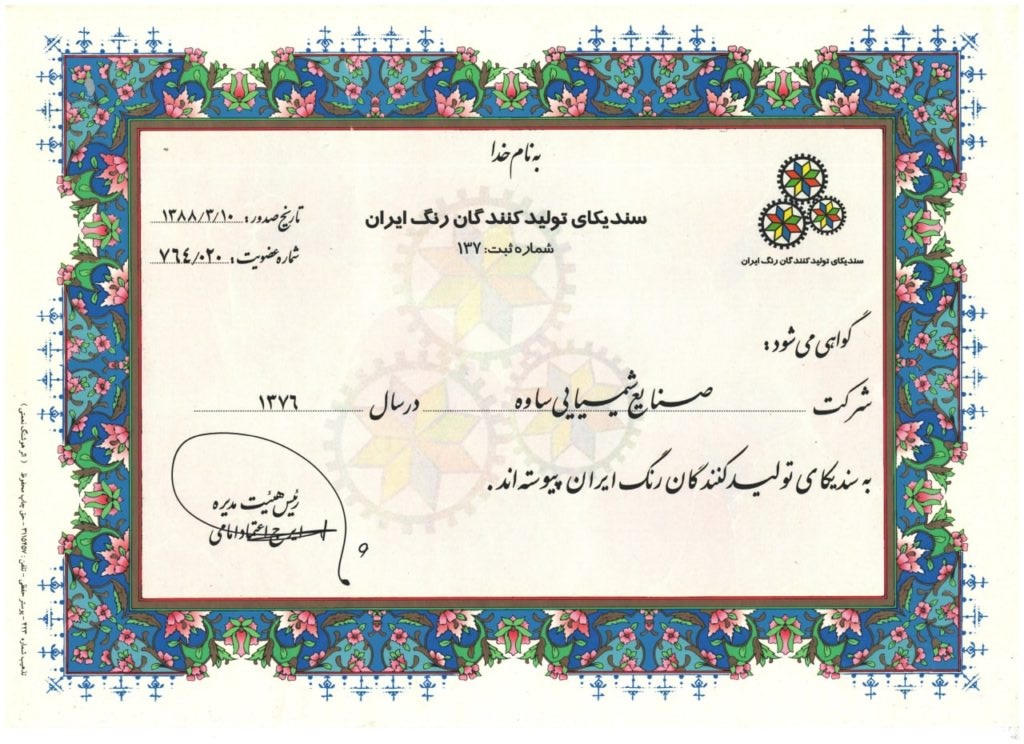 به نام خدا
سندیکای تولیدکنندگان رنگ ایران
شماره ثبت: ۱۳۷
تاریخ صدور: ۱۳۸۸/۳/۱۰
شماره عضویت: ۷۶۴/۰۲۰
سندیکای تولیدکنندگان رنگ ایران
گواهی می شود:
شرکت صنایع شیمیایی ساوه در سال ۱۳۷۶
به سندیکای تولیدکنندگان رنگ ایران پیوسته اند.
رئیس هیئت مدیره
ایرج اعتماد امامی